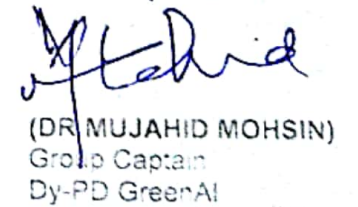 (DR MUJAHID MOHSIN)
Group Captain
Dy-PD GreenAI